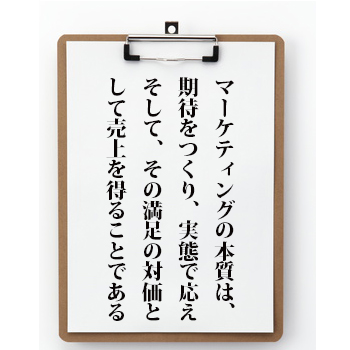 マーケティングの本質は、
期待をつくり、実態で応え
そして、その満足の対価と
して売上を得ることである